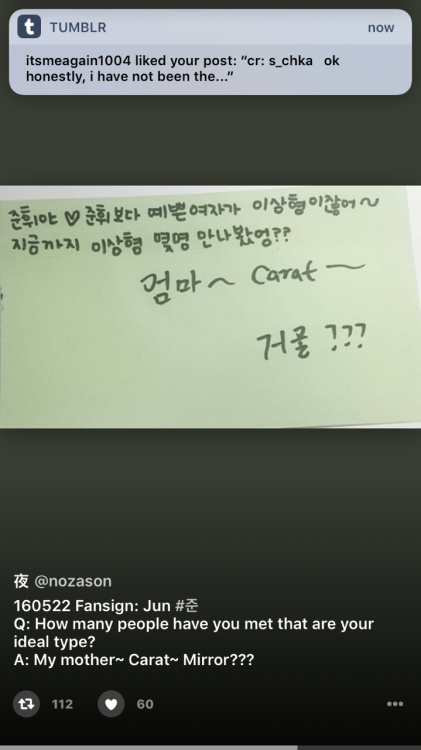 TUMBLR now
itsmeagain1004 liked your post: “cr: s_chka ok
honestly, i have not been the...”
준휘야 ♡ 준휘보다 예쁜여자가 이상형이잖어~
지금까지 이상형 몇명 만나봤엉??
엄마~ Carat~
거울 ???
夜 @nozason
160522 Fansign: Jun #준
Q: How many people have you met that are your
ideal type?
A: My mother~ Carat~ Mirror???
112 60